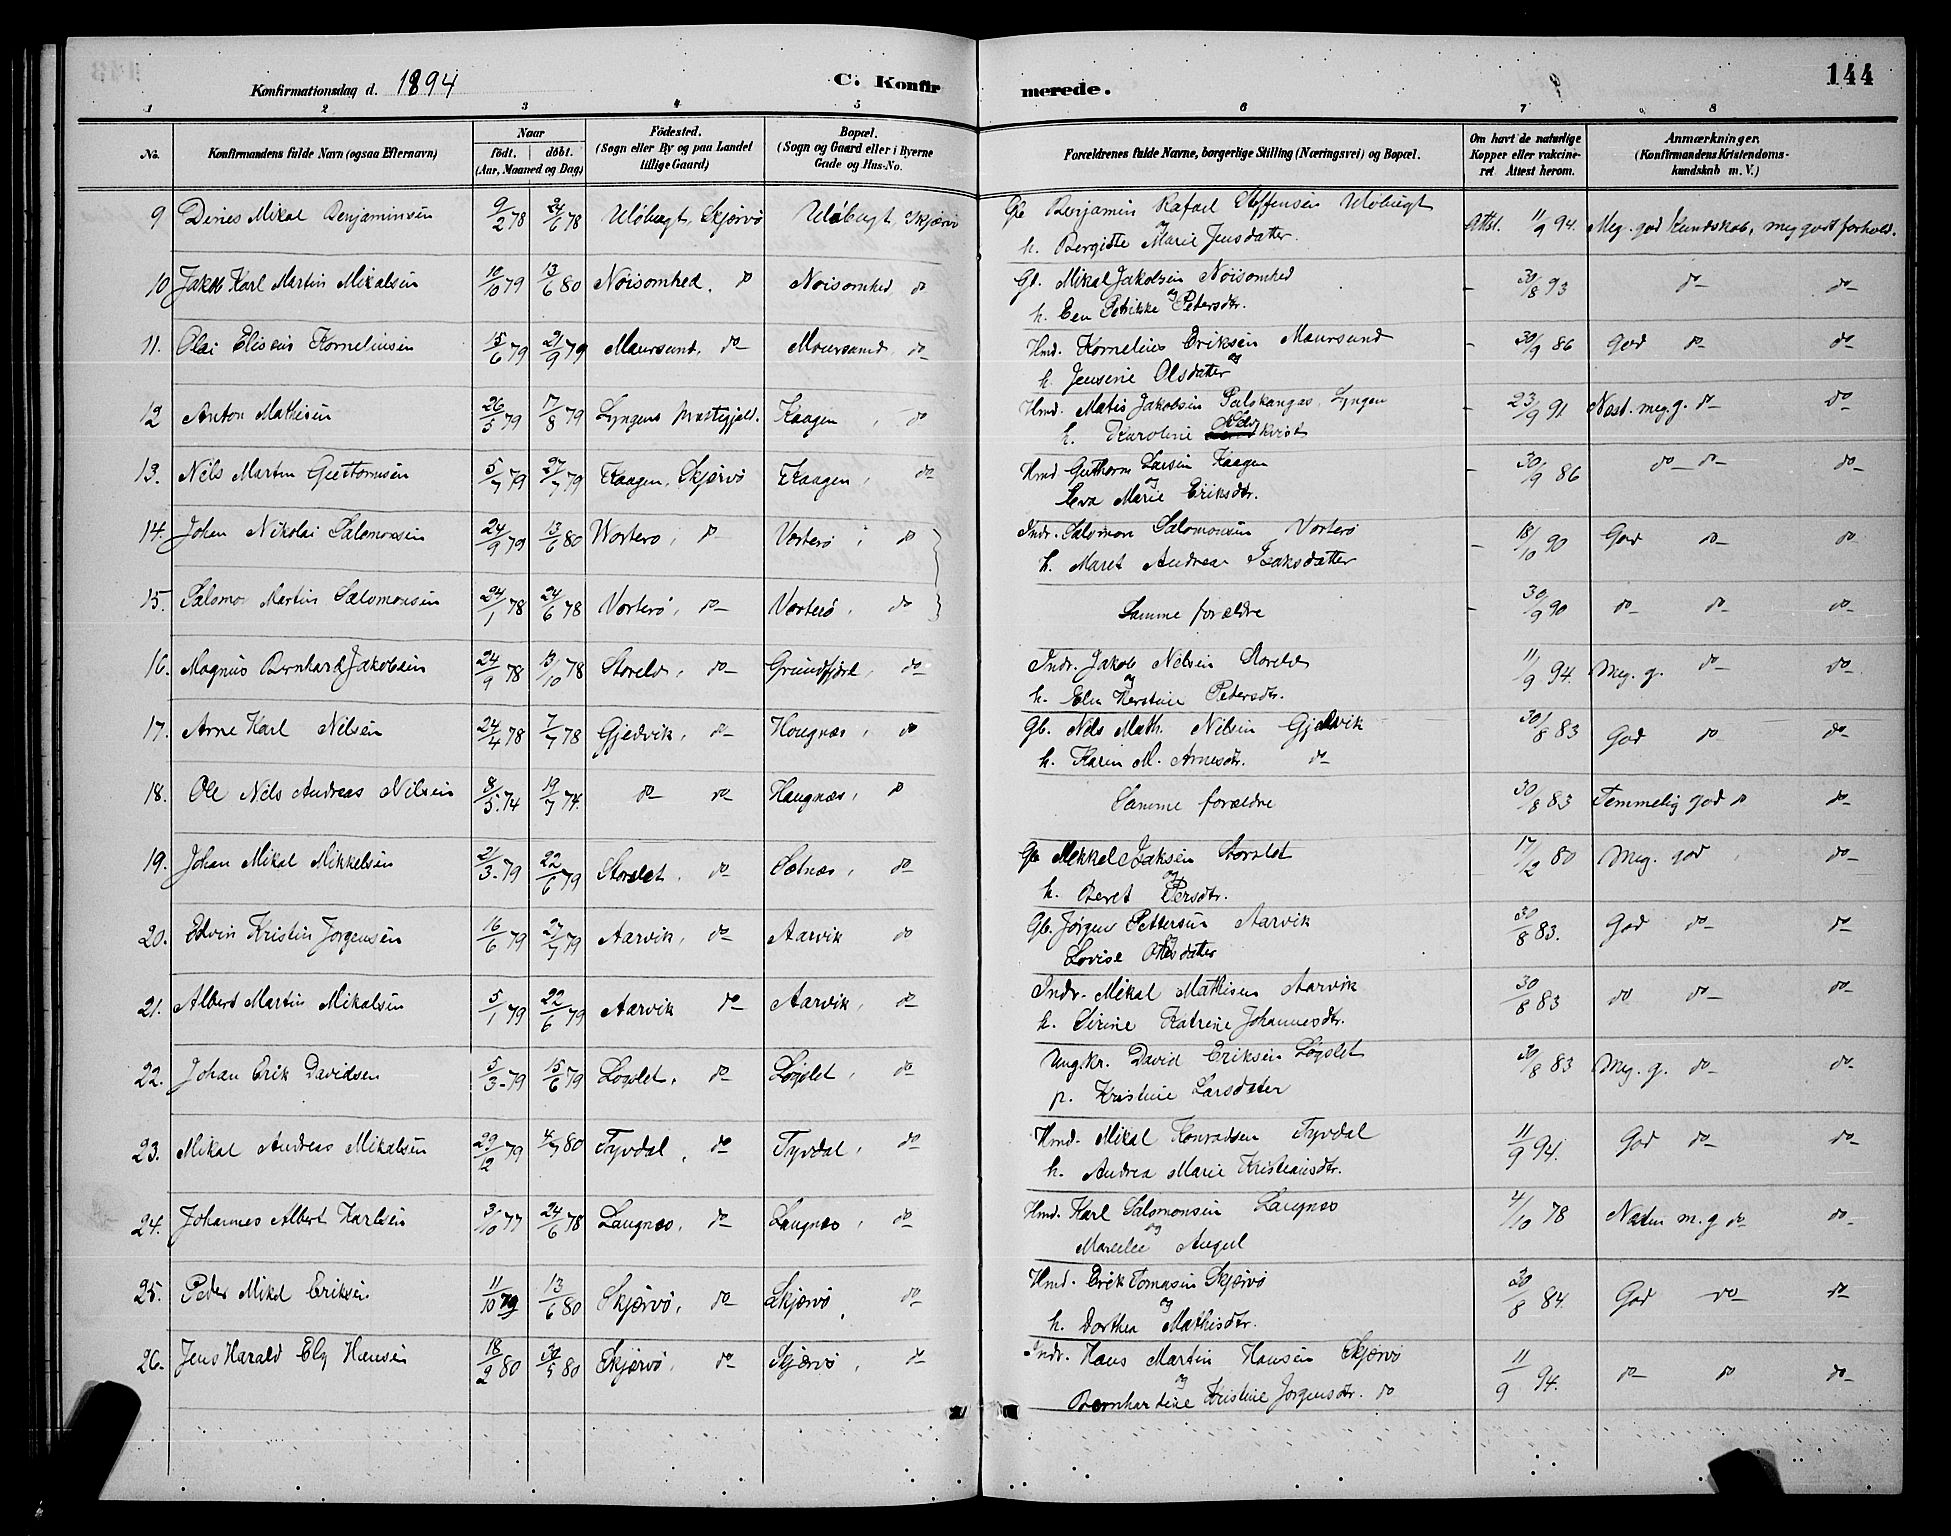 144
Konfirmationsdag d. 1894
C. Konfirmerede.
1 2 3 4 5 6 7 8
No. Konfirmandens fulde Navn (ogsaa Efternavn) Naar født. døbt. (Aar, Maaned og Dag) Fødested. (Sogn eller By og paa Landet tillige Gaard) Bopæl. (Sogn og Gaard eller i Byerne Gade og Hus-No. Forældrenes fulde Navne, borgerlige Stilling (Næringsvei) og Bopæl. Om havt de naturlige Kopper eller vakcineret Attest herom. Anmærkninger. (Konfirmandens Kristendomskundskab m. V.)
9 Mikal Benjaminsen 9/2 78 24/6 78 Uløbugt, Skjervø Uløbugt, Skjærvø Gb Benjamin Rafael Steffensen Uløbugt Attst. 11/9 94. Meg. god Kundskab, meg godt forhold.
og
h. Bergitte Marie Jensdatter.
10 Jakob Karl Martin Mikalsen 10/10 79 13/6 80 Nøisomhed, do Nøisomhed do Gb. Mikal Jakobsen Nøisomhed - 30/8 93 do- do-
og
h. Elen Petrikke Petersdtr.
11. Olai Eliseus Kornelius­en 15/6 79 21/9 79 Maursund, do- Maursund do- Hmd. Kornelius Eriksen Maursund - 30/9 86 God do- do-
og
h. Jensine Olsdatter
12 Anton Mathisen 26/5 79 17/8 79 Lyngens Præstegjeld. Kaagen, do Hmd. Matis Jakobsen Lyngen - 23/9 91 Næst. meg. g. do- do-
h. Karoline kvist
13. Nils Martin Guttormsen 5/7 79 27/7 79 Kaagen, Skjervø Kaagen, do- Hmd Guthorm Larsen Kaagen - 30/9 86 do- do- do-
og
Marie Eriksdtr.
14. Johan Nikolai Salomonsen 24/9 79 13/6 80 Vorterø, do- Vorterø, do Indr. Salomon Salomonsen Vorterø - 18/10 90 God do- do-
h. Maret Andrea Isaksdatter
15. Salomon Martin Salomonsen 24/1 78 24/6 78 Vorterø, do- Vorterø, do Samme forældre - 30/9 90 do- do- do-
16. Magnus Bernhard Jakobsen 24/9 78 13/10 78 do- Grundfjord, do- Indr. Jakob Nilsen 11/9 94. Meg. g. do- do-
og
h. Elen Kerstine Petersdtr.
17. Arne Karl Nilsen 24/4 78 7/7 78 Gjedvik, do- Haugnæs, do Gb. Nils Math. Nilsen Gjedvik 30/8 83 God do- do-
h. Karen M. Arnesdtr. do-
18. Ole Nils Andreas Nilsen 8/5 74 19/7 74. do- do- Haugnæs, do Samme forældre 30/8 83 Temmelig god do do-
19. Johan Mikal Mikkelsen 21/3 79 22/6 79 Storslet, do- do- Gb Mikkel Isaksen Storslet 17/12 80 Meg. god, do-
og
h. Beret Persdtr.
20. Edvin Kristin Jørgensen 16/6 79 27/7 79 Aarvik, do- Aarvik do Gb. Jørgen Pettersen Aarvik 30/8 83. God do- do-
og
Lovise Olsdatter
21. Albert Martin Mikalsen 5/1 79 22/6 79 Aarvik do- Aarvik, do- Indr. Mikal Mathisen Aarvik 30/8 83 do do- do-
h. Sirine Katrine Johannesdtr.
22. Johan Erik Davidsen 5/3 79 15/6 79 Løgslet, do- Løgslet, do- Ungkr. David Eriksen Løgslet 30/8 83 Meg. g. do- do-
p. Kristine Larsdatter
23. Mikal Andreas Mikalsen 29/12 79 4/7 80 Tyvdal, do- Tyvdal, do- Hmd. Mikal Konradsen Tyvdal 11/9 94. God do- do-
h. Andrea Marie Kristiansdtr.
24. Johannes Albert Karlsen 3/10 77 24/6 78 Laugnæs, do- Laugnæs, do- Hmd. Karl Salomonsen Laugnæs 4/10 78 Næsten m. g do- do-
og
25. Peder Mikal Eriksen 11/10 79 13/6 80 Skjærvø, do- Skjærvø, do- Hmd. Erik Tomasen Skjærvø 30/8 84. God do- do-
og
h. Dorthea Mathisdtr.
26. Jens Harald Hansen 18/2 80 30/5 80 Skjærvø, do- Skjærvø, do- Indr. Hans Martin Hansen Skjærvø 11/9 94. do- do do-
og
Bernhardine Kristine Jørgensdtr. do